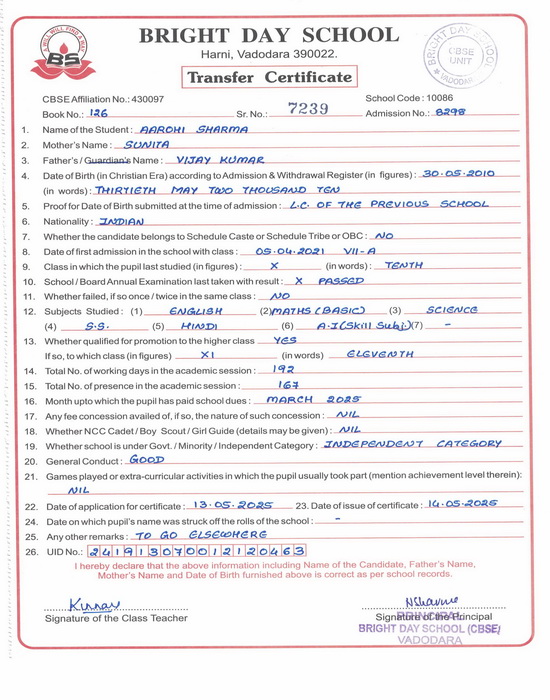 A WILL WILL FIND A WAY
BS
BRIGHT DAY SCHOOL
Harni, Vadodara 390022.
Transfer Certificate
BRIGHT DAY SCHOOL
CBSE
UNIT
VADODARA
CBSE Affiliation No.: 430097 School Code : 10086
Book No.: 126 Sr. No.: 7239 Admission No.: 8298
1. Name of the Student : AAROHI SHARMA
2. Mother's Name : SUNITA
3. Father's / Guardian's Name : VIJAY KUMAR
4. Date of Birth (in Christian Era) according to Admission & Withdrawal Register (in figures) : 30-05-2010
(in words) : THIRTIETH MAY TWO THOUSAND TEN
5. Proof for Date of Birth submitted at the time of admission : L.C. OF THE PREVIOUS SCHOOL
6. Nationality : INDIAN
7. Whether the candidate belongs to Schedule Caste or Schedule Tribe or OBC : NO
8. Date of first admission in the school with class : 05-04-2021 VII-A
9. Class in which the pupil last studied (in figures) : X (in words) : TENTH
10. School / Board Annual Examination last taken with result : X PASSED
11. Whether failed, if so once / twice in the same class : NO
12. Subjects Studied : (1) ENGLISH (2) MATHS (BASIC) (3) SCIENCE
(4) S.S. (5) HINDI (6) A.I (Skill Subj.) (7) -
13. Whether qualified for promotion to the higher class YES
If so, to which class (in figures) XI (in words) ELEVENTH
14. Total No. of working days in the academic session : 192
15. Total No. of presence in the academic session : 167
16. Month upto which the pupil has paid school dues : MARCH 2025
17. Any fee concession availed of, if so, the nature of such concession : NIL
18. Whether NCC Cadet / Boy Scout / Girl Guide (details may be given) : NIL
19. Whether school is under Govt. / Minority / Independent Category : INDEPENDENT CATEGORY
20. General Conduct : GOOD
21. Games played or extra-curricular activities in which the pupil usually took part (mention achievement level therein):
NIL
22. Date of application for certificate : 13-05-2025 23. Date of issue of certificate : 14-05-2025
24. Date on which pupil's name was struck off the rolls of the school : -
25. Any other remarks : TO GO ELSEWHERE
26. UID No.: 241913070012120463
I hereby declare that the above information including Name of the Candidate, Father's Name,
Mother's Name and Date of Birth furnished above is correct as per school records.
Signature of the Class Teacher Signature of the Principal
PRINCIPAL
BRIGHT DAY SCHOOL (CBSE)
VADODARA